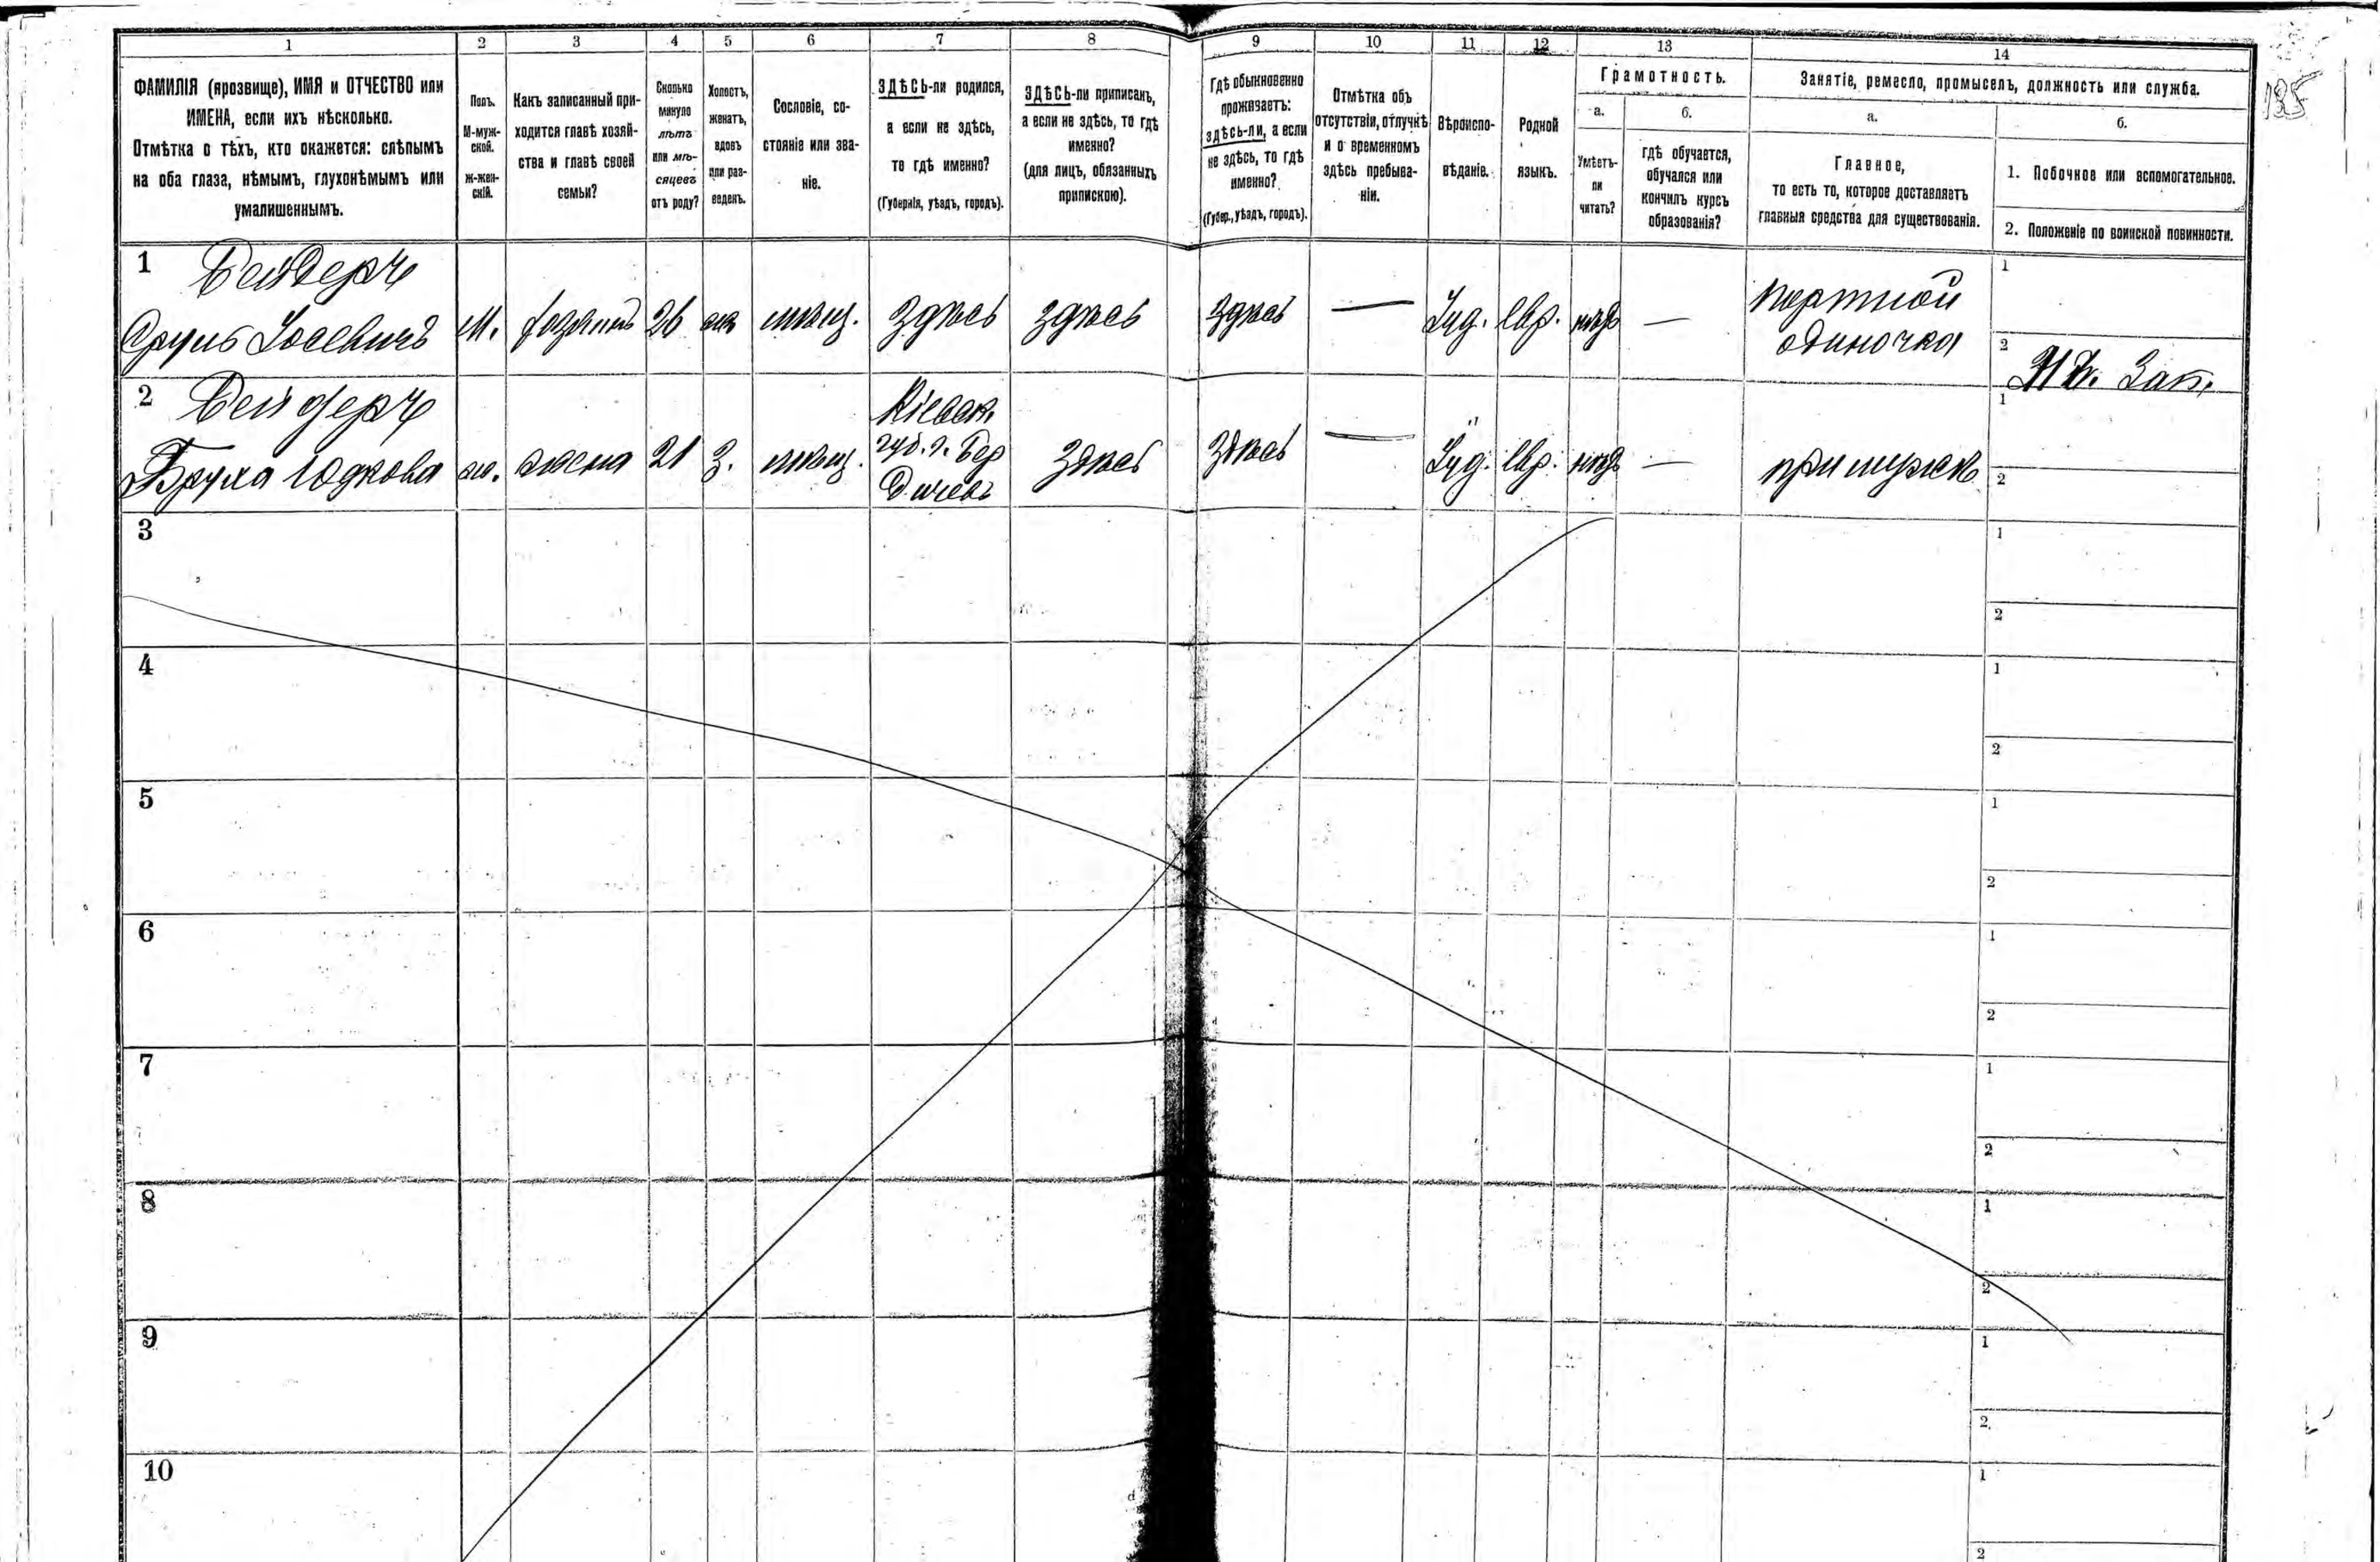 1 2 3 4 5 6 7 8 9 10 11 12 13 14
185
ФАМИЛІЯ (прозвище), ИМЯ и ОТЧЕСТВО или
ИМЕНА, если ихъ нѣсколько.
Отмѣтка о тѣхъ, кто окажется: слѣпымъ
на оба глаза, нѣмымъ, глухонѣмымъ или
умалишеннымъ.
Полъ.
М-муж-
ской.
Ж-жен-
скій.
Какъ записанный при-
ходится главѣ хозяй-
ства и главѣ своей
семьи?
Сколько
минуло
лѣтъ
или мѣ-
сяцевъ
отъ роду?
Холостъ,
женатъ,
вдовъ
или раз-
веденъ.
Сословіе, со-
стояніе или зва-
ніе.
ЗДѢСЬ-ли родился,
а если не здѣсь,
то гдѣ именно?
(Губернія, уѣздъ, городъ).
ЗДѢСЬ-ли приписанъ,
а если не здѣсь, то гдѣ
именно?
(для лицъ, обязанныхъ
припискою).
Гдѣ обыкновенно
проживаетъ:
здѣсь-ли, а если
не здѣсь, то гдѣ
именно?
(Губер., уѣздъ, городъ).
Отмѣтка объ
отсутствіи, отлучкѣ
и о временномъ
здѣсь пребыва-
ніи.
Вѣроиспо-
вѣданіе.
Родной
языкъ.
Грамотность.
а.
Умѣетъ-
ли
читать?
б.
гдѣ обучается,
обучался или
кончилъ курсъ
образованія?
Занятіе, ремесло, промыселъ, должность или служба.
а.
Главное,
то есть то, которое доставляетъ
главныя средства для существованія.
б.
1. Побочное или вспомогательное.
2. Положеніе по воинской повинности.
1 Бейдеръ
Сруль Іосевичъ М. хозяинъ 26 мѣщ. здѣсь здѣсь здѣсь — Іуд. Евр. нѣтъ — портной
одиночка
1
2
2 Бейдеръ
Брука Юдкова ж. жена 21 З. мѣщ. Кіевск.
губ. г. Бер
дичевъ здѣсь здѣсь — Іуд. Евр. нѣтъ — при мужѣ
1
2
3
1
2
4
1
2
5
1
2
6
1
2
7
1
2
8
1
2
9
1
2.
10
1
2